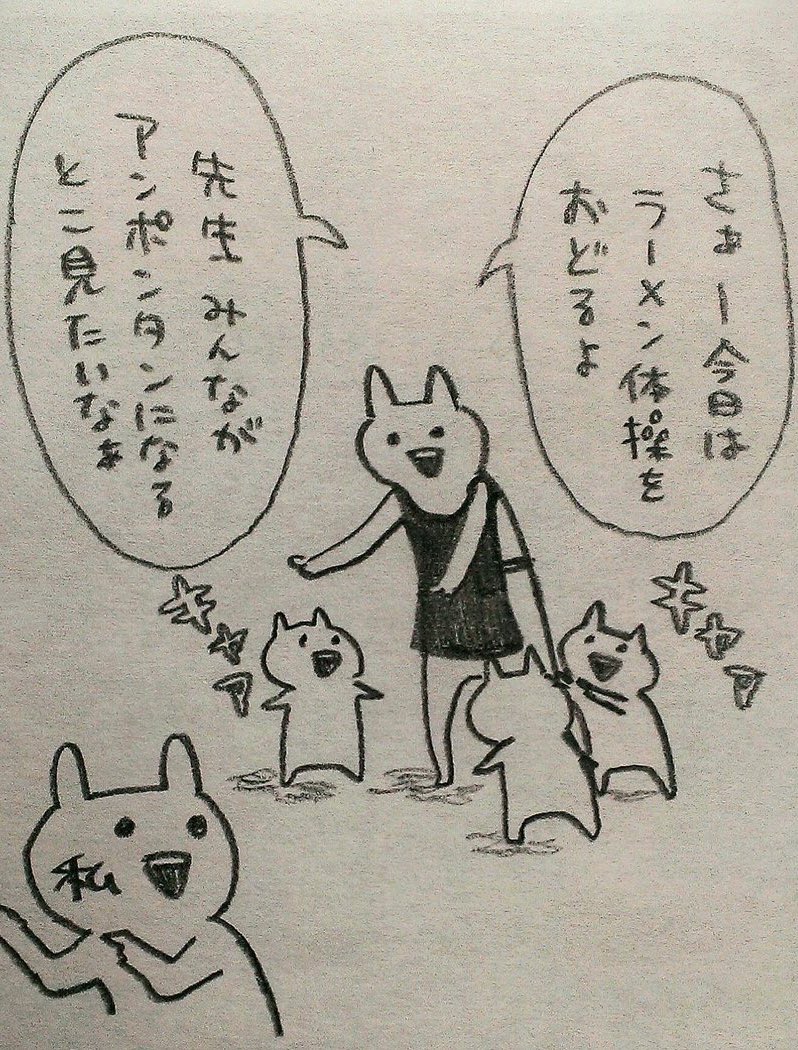 さぁー今日は
ラーメン体操を
おどるよ
先生 みんなが
アンポンタンになる
とこ見たいなぁ
私